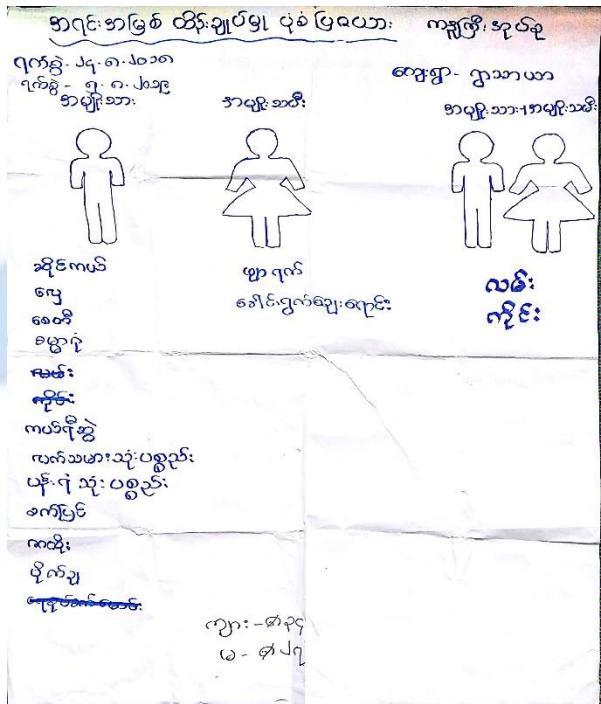 အရင်းအမြစ် ထိန်းချုပ်မှု ပုံစံပြဇယား ကညွှတ်ကြီးအုပ်စု
ရက်စွဲ- ၂၄.၈.၂၀၁၈
ရက်စွဲ - ၅.၈.၂၀၁၉
ကျေးရွာ - ရွာသာယာ
အမျိုးသား အမျိုးသမီး အမျိုးသား+အမျိုးသမီး
ဆိုင်ကယ်
လှေ
စေတီ
ဓမ္မာရုံ
လမ်း
ကိုင်း
ကယ်ရီဆွဲ
လက်သမားသုံးပစ္စည်း
ပန်းရံသုံးပစ္စည်း
စက်ပြင်
ကထိုး
ပိုက်ချ
ဖျာရက်
ခေါင်းရွက်ဈေးရောင်း
လမ်း
ကိုင်း
ကျား -
မ -